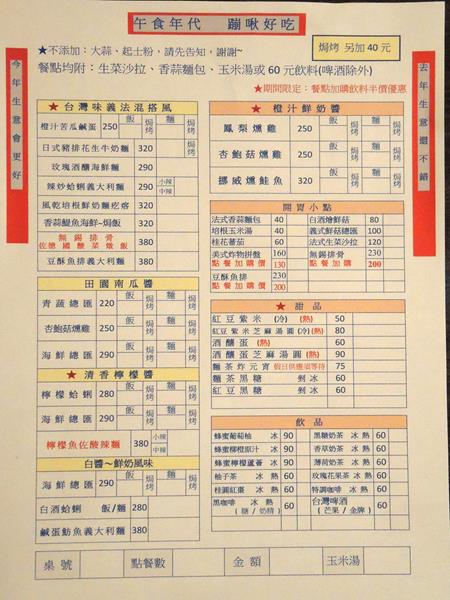 午食年代　蹦啾好吃
★不添加：大蒜、起士粉，請先告知，謝謝~
焗烤 另加 40 元
餐點均附：生菜沙拉、香蒜麵包、玉米湯或 60 元飲料(啤酒除外)
★期間限定：餐點加購飲料半價優惠
今年生意會更好
去年生意還不錯
★台灣味義法混搭風
橙汁苦瓜鹹蛋 250 飯 焗烤 麵 焗烤
日式豬排花生牛奶麵 320
玫瑰酒釀海鮮麵 290
辣炒蛤蜊義大利麵 290 小辣 中辣
風乾培根鮮奶麵疙瘩 320
香蒜鯷魚海鮮~焗飯 320
無錫排骨
佐德國酸菜燉飯 380
豆酥魚排義大利麵 380
田園南瓜醬
青蔬總匯 220 飯 焗烤 麵 焗烤
杏鮑菇燻雞 250
海鮮總匯 290
★清香檸檬醬
檸檬蛤蜊 280 飯 焗烤 麵 焗烤
海鮮總匯 290
檸檬魚佐酸辣麵 380 小辣 中辣
白醬～鮮奶風味
海鮮總匯 290 飯 焗烤 麵 焗烤
白酒蛤蜊 飯/麵 280
鹹蛋魴魚義大利麵 280
★橙汁鮮奶醬
鳳梨燻雞 250 飯 焗烤 麵 焗烤
杏鮑菇燻雞 250
挪威燻鮭魚 320
開胃小點
法式香蒜麵包 40 白酒燴鮮菇 80
培根玉米湯 40 義式鮮菇總匯 100
桂花蕃茄 60 法式生菜沙拉 120
美式炸物拼盤 160 無錫排骨 230
點餐加購價 130 點餐加購價 200
豆酥魚排 230
點餐加購價 200
★甜品
紅豆紫米(冷)(熱) 50
紅豆紫米芝麻湯圓(冷)(熱) 80
酒釀蛋(熱) 60
酒釀蛋芝麻湯圓(熱) 90
麵茶炸元宵 假日供應須等待 75
麵茶黑糖 剉冰 60
紅豆黑糖 剉冰 60
飲品
蜂蜜葡萄柚 冰 90 黑糖奶茶 冰 熱 60
蜂蜜柳橙原汁 冰 90 香草奶茶 冰 熱 60
蜂蜜檸檬蘆薈 冰 90 薄荷奶茶 冰 熱 60
柚子茶 冰 熱 60 玫瑰花果茶 冰 熱 60
桂圓紅棗 冰 熱 60 特調咖啡 冰 熱 60
黑咖啡 冰 熱 60 台灣啤酒 60
(糖/奶精) (芒果/金牌)
桌號 點餐數 金額 玉米湯